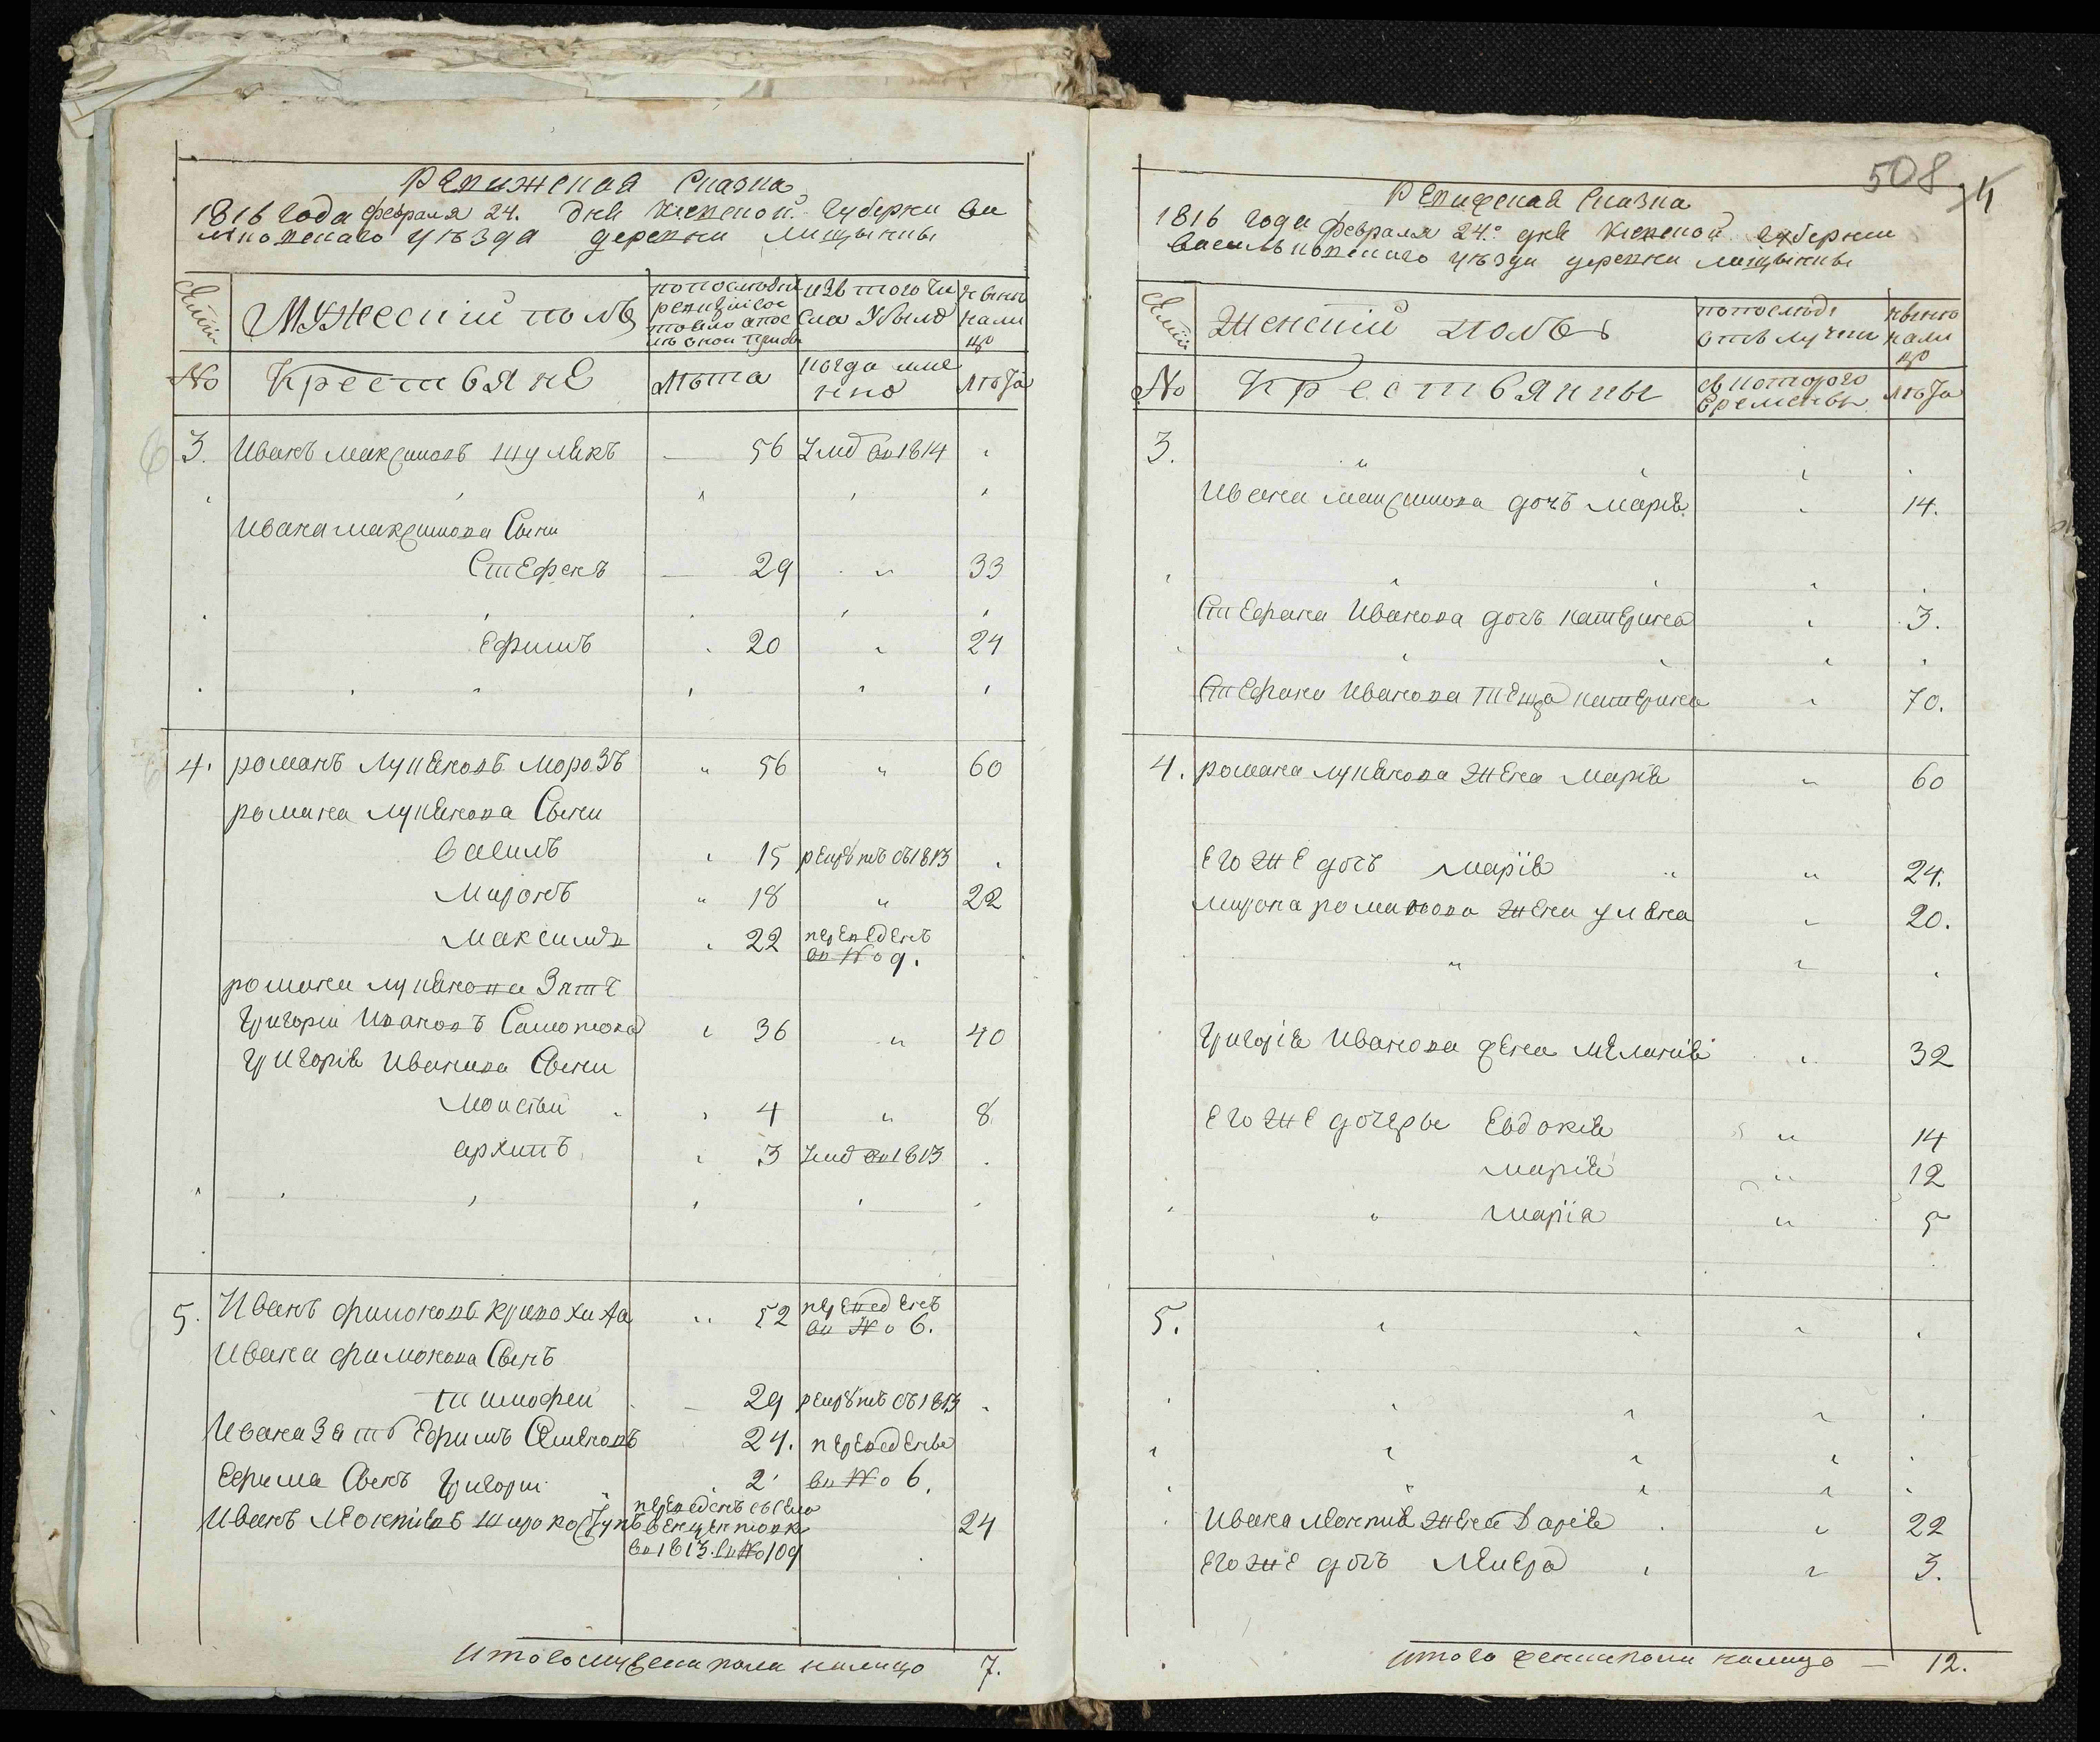 Ревижская Сказка
1816 года февраля 24. дня Киевской Губернии Ва
силковскаго уезда деревни
Семьи
Мужеский полъ
по последней
ревизии сос
тояло и пос
ле оной прибы
изъ того чи
сла убыло
ныне
нали
цо
No
Крестьяне
лета
когда име
нно
лета
3. Иванъ Максимовъ Шулякъ — 56 Умер во 1814
Ивана Максимова Сыны
Стефанъ — 29 " 33
Ефимъ 20 24
4. романъ лукьяновъ морозъ " 56 " 60
романа лукьянова Сыны
василь 15 рекрутъ въ 1813
Миронъ " 18 " 22
Максимъ 22 переведенъ
во No 9.
романа лукьянова Зять
Григорий Ивановъ 36 " 40
Григория Иванова Сыны
Моисей 4 " 8
архипъ 3 Умер во 1813
5. Иванъ филоновъ кривохижа " 52 переведенъ
во No 6.
Ивана филонова Сынъ
тимофей — 29 рекрутъ въ 1813
Ивана Зять Ефимъ 24. переведены
Ефима Сынъ Григорий 2 во No 6.
Иванъ Леонтиевъ переведенъ изъ села 24
во 1813. во No 109
Итого мужеска пола налицо 7.
508
4
Ревижская Сказка
1816 года февраля 24. дня Киевской Губернии
Васильковскаго уезда деревни
Семьи
Женский полъ
во времянной
отлучке
ныне
нали
цо
No
Крестьянки
съ котораго
времены
лета
3.
Ивана Максимова дочь мария 14.
Стефана Иванова дочь катерина 3.
Стефана Иванова теща катерина 70.
4. романа лукьянова жена мария " 60
Его же дочь мария " 24.
мирона романова жена уляна 20.
Григория Иванова жена мелания 32
Его же дочери Евдокия " 14
мария " 12
мария " 5
5.
Ивана Леонтия жена Дария 22
Его же дочь 3.
Итого женска пола налицо — 12.